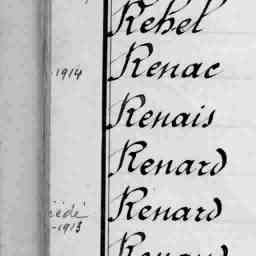 Rebel
1914 Renac
Renais
Renard
cédé Renard
-1913
Renard